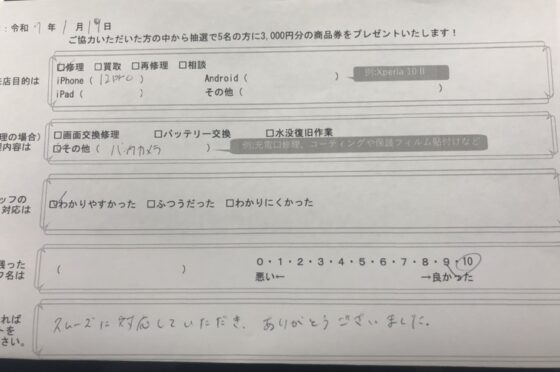 :令和 7 年 1 月 19 日
ご協力いただいた方の中から抽選で5名の方に3,000円分の商品券をプレゼントいたします!
来店目的は
□修理 □買取 □再修理 □相談
iPhone ( 12pro ) Android ( ) 例:Xperia 10 Ⅱ
iPad ( ) その他 ( )
理の場合)
理内容は
□画面交換修理 □バッテリー交換 □水没復旧作業
□その他 ( バックカメラ ) 例:充電口修理、コーティングや保護フィルム貼付けなど
ッフの
対応は
☑わかりやすかった □ふつうだった □わかりにくかった
残った
フ名は
( )
0・1・2・3・4・5・6・7・8・9・10
悪い← →良かった
れば
トを
さい。
スムーズに対応していただき、ありがとうございました。